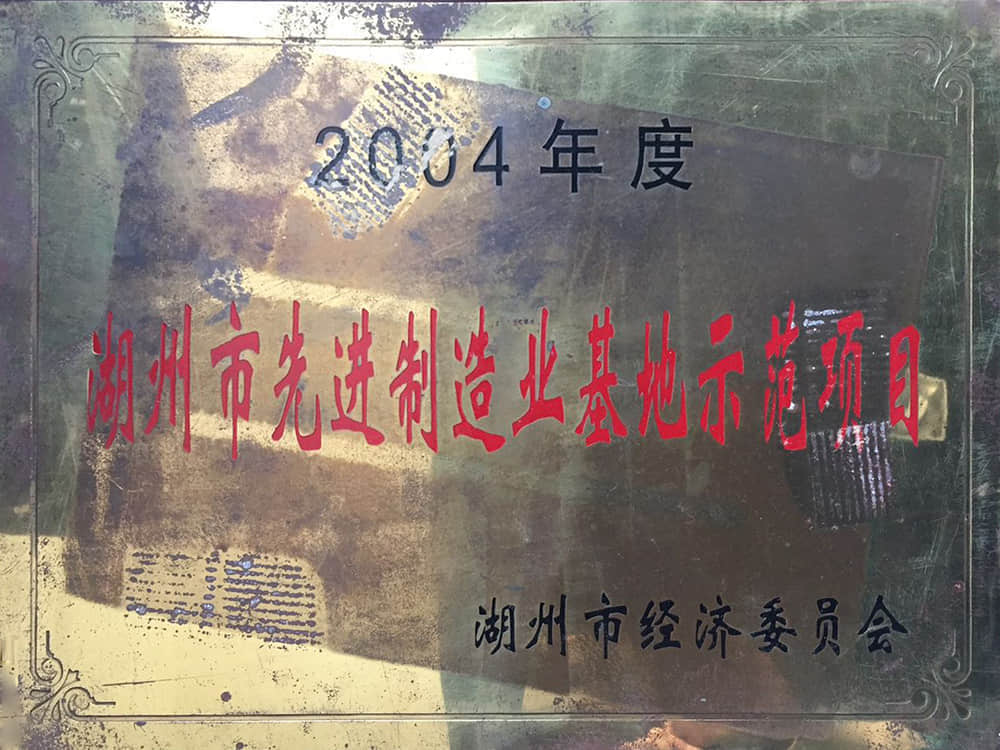 2004年度
湖州市先进制造业基地示范项目
湖州市经济委员会